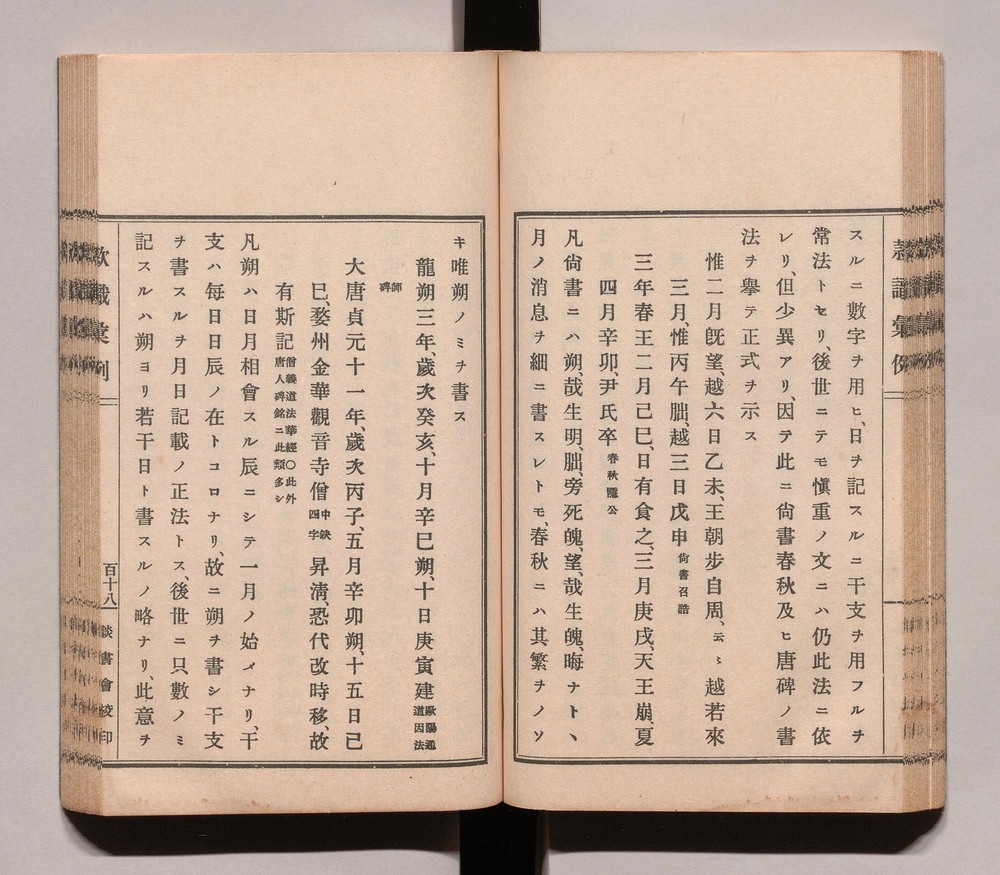 スルニ數字ヲ用ヒ、日ヲ記スルニ干支ヲ用フルヲ
常法トセリ、後世ニテモ愼重ノ文ニハ仍此法ニ依
レリ、但少異アリ、因テ此ニ尙書春秋及ヒ唐碑ノ書
法ヲ擧テ正式ヲ示ス
惟二月旣望、越六日乙未、王朝步自周、云〻越若來
三月、惟丙午朏、越三日戊申尙書召誥
三年春王二月己巳、日有食之、三月庚戌、天王崩、夏
四月辛卯、尹氏卒春秋隱公
凡尙書ニハ朔、哉生明、朏、旁死魄、望、哉生魄、晦ナト、
月ノ消息ヲ細ニ書スレトモ、春秋ニハ其繁ヲノソ
キ唯朔ノミヲ書ス
龍朔三年、歲次癸亥、十月辛巳朔、十日庚寅建歐陽通道因法
師碑
大唐貞元十一年、歲次丙子、五月辛卯朔、十五日己
巳、婺州金華觀音寺僧中缺四字昇淸、恐代改時移、故
有斯記僧義道法華經〇此外唐人碑銘ニ此類多シ
凡朔ハ日月相會スル辰ニシテ一月ノ始メナリ、干
支ハ每日日辰ノ在トコロナリ、故ニ朔ヲ書シ干支
ヲ書スルヲ月日記載ノ正法トス、後世ニ只數ノミ
記スルハ朔ヨリ若干日ト書スルノ略ナリ、此意ヲ
款識彙例
百十八
談書會挍印